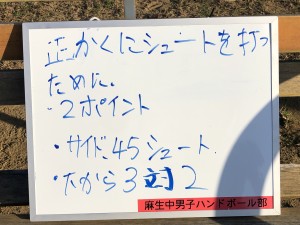 正かくにシュートを打つ
ために。
・2ポイント
・サイド、45シュート.
・たから3対2
麻生中男子ハンドボール部